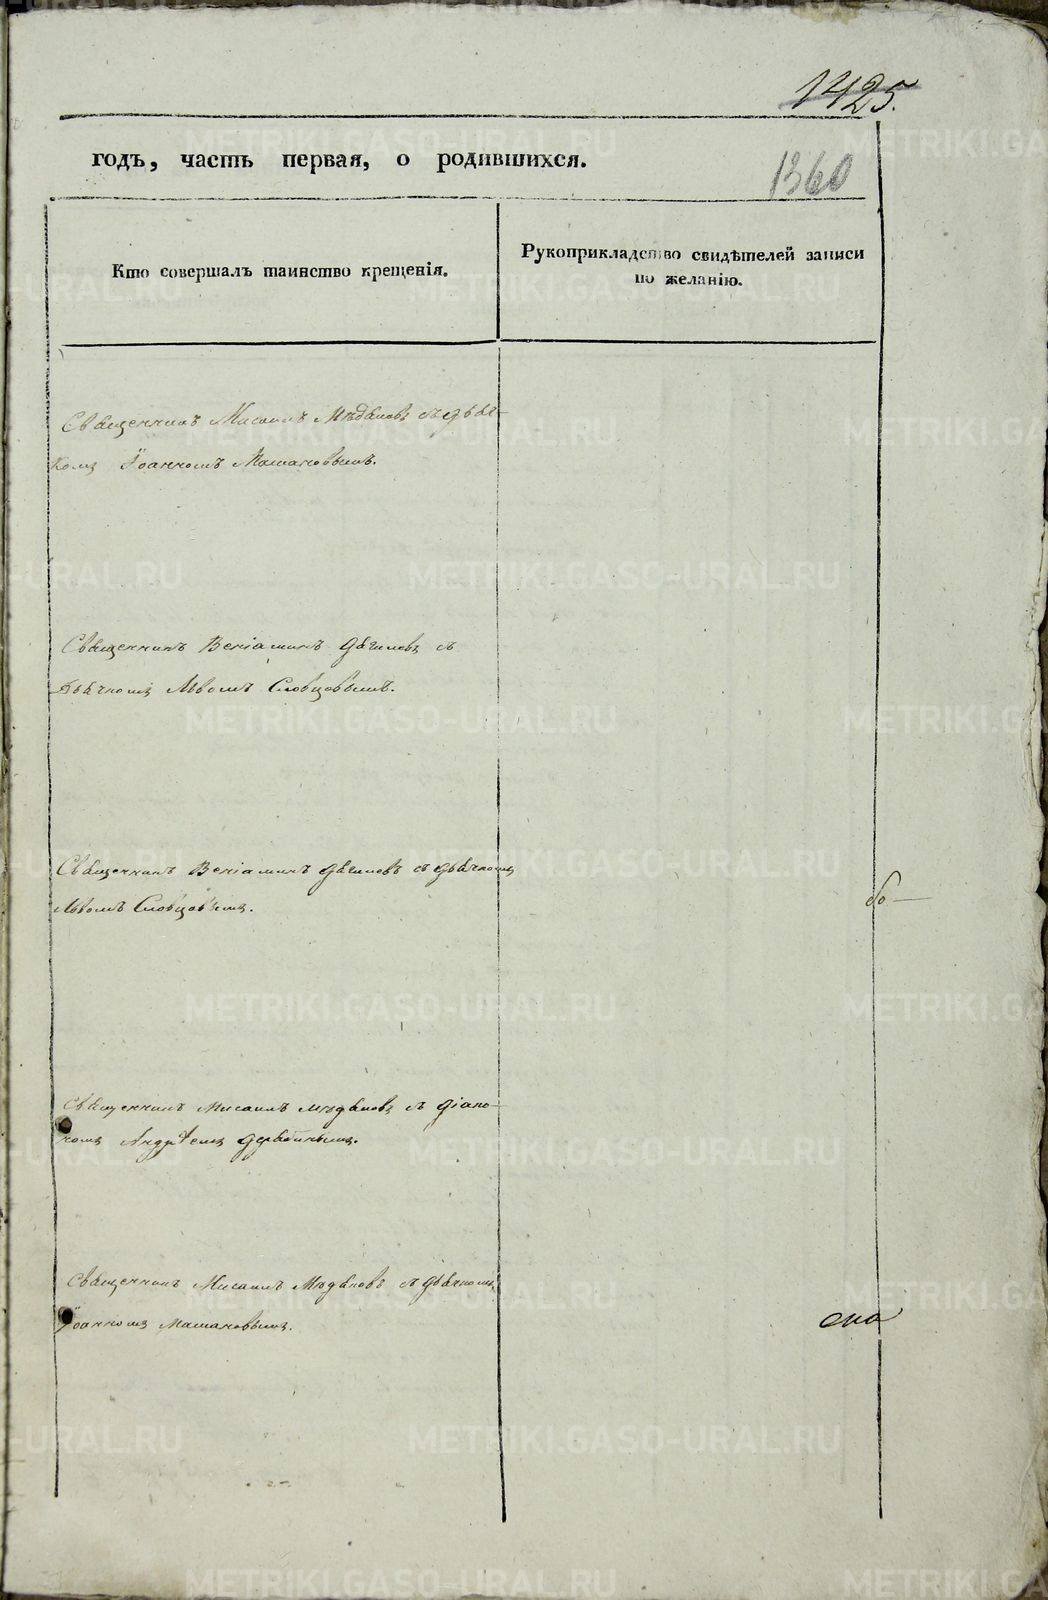 1425.
годъ, часть первая, о родившихся.
1360
Кто совершалъ таинство крещенія.
Рукоприкладство свидѣтелей записи
по желанію.
Священникъ Мисаилъ съ дьяч-
комъ Іоанномъ Машановымъ.
Священникъ Веніаминъ Дягилевъ съ
дьячкомъ Львомъ Словцовымъ.
Священникъ Веніаминъ Дягилевъ съ дьячкомъ
Львомъ Словцовымъ.
Священникъ Мисаилъ съ діако-
номъ Андреемъ
Священникъ Мисаилъ съ дьячкомъ
Іоанномъ Машановымъ.
METRIKI.GASO-URAL.RU